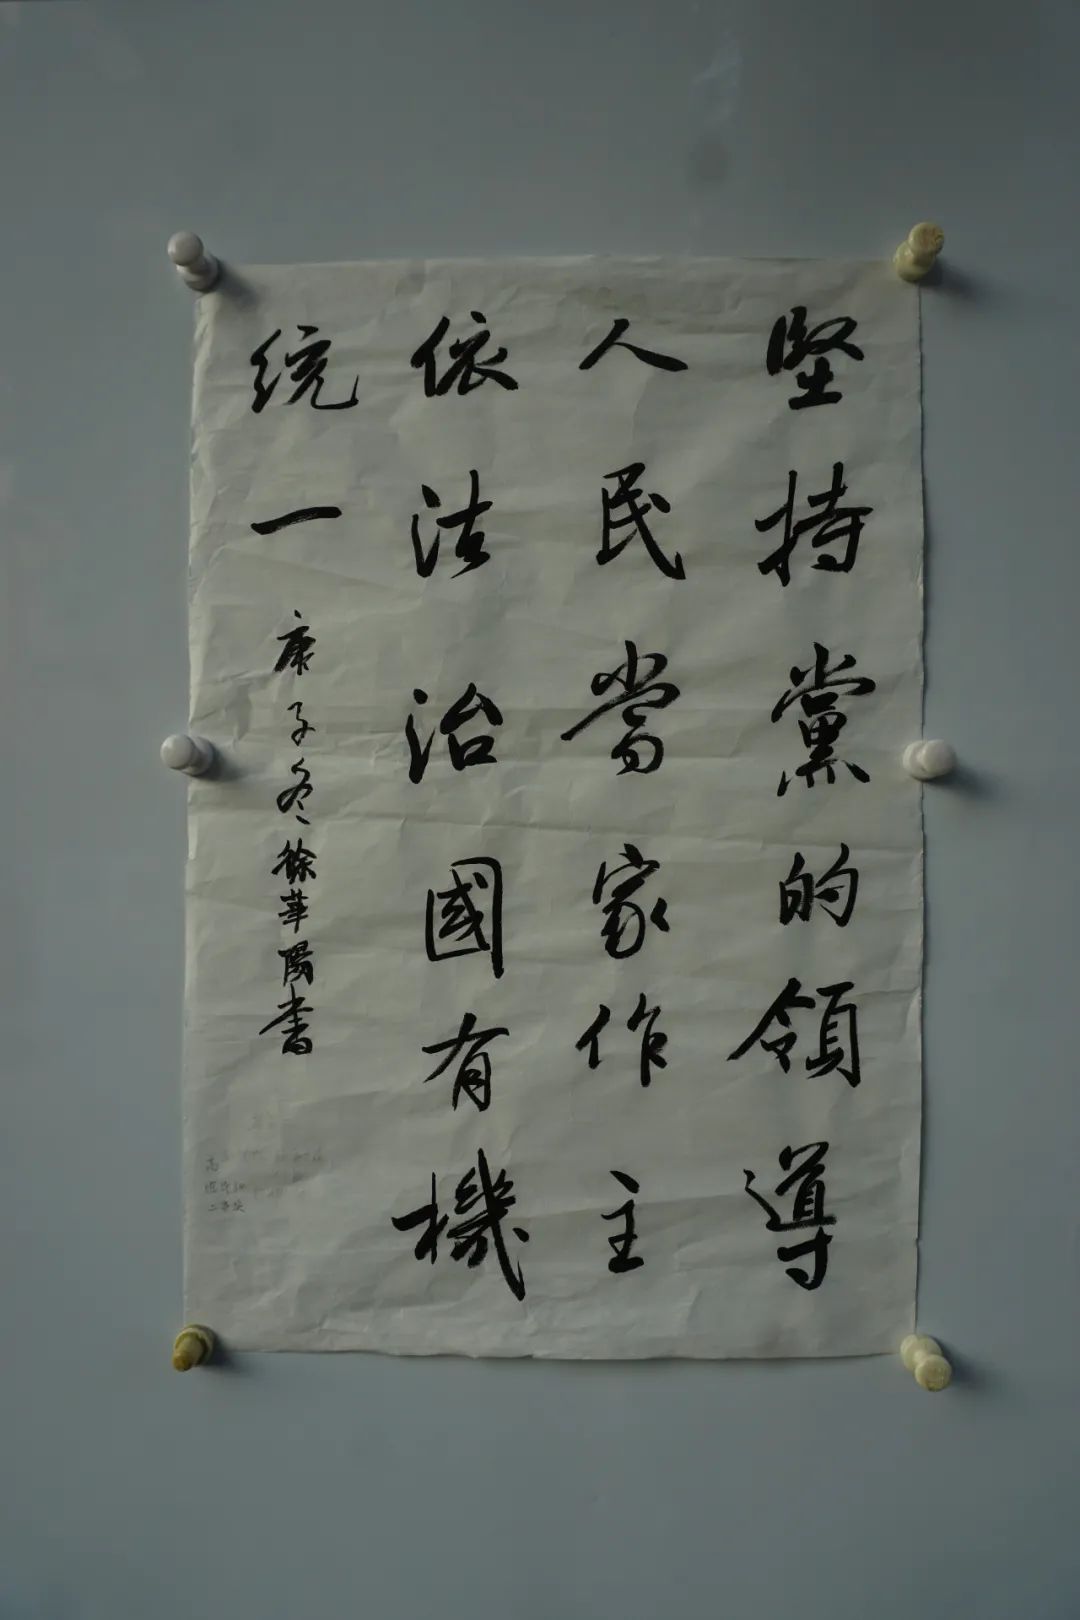 堅持黨的領導
人民當家作主
依法治國有機
统一
庚子冬徐華陽書